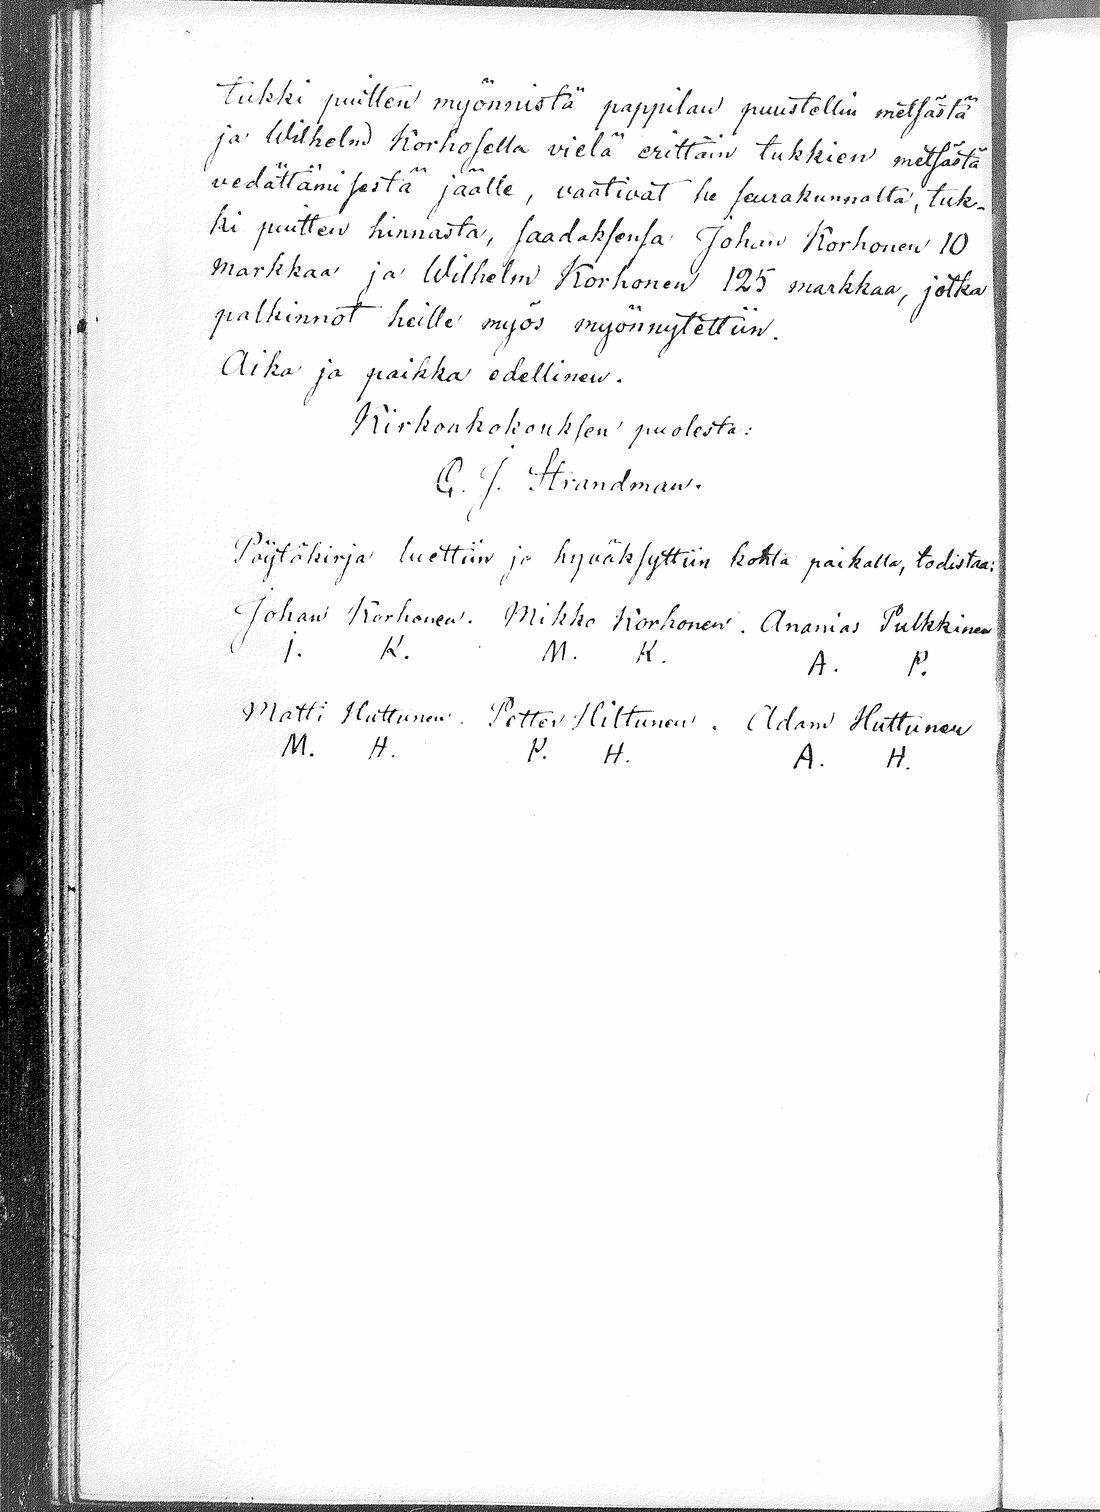 tukki puitten myönnistä pappilan puustellin metsästä
ja Wilhelm Korhosella vielä erittäin tukkien metsästä
vedättämisestä jäälle, vaativat he seurakunnalta, tuk-
ki puitten hinnasta, saadaksensa Johan Korhonen 10
markkaa ja Wilhelm Korhonen 125 markkaa, jotka
palkinnot heille myös myönnytettiin.
Aika ja paikka edellinen.
Kirkonkokouksen puolesta:
G. J. Strandman.
Pöytäkirja luettiin ja hyväksyttiin kohta paikalla, todistaa:
Johan Korhonen. Mikko Korhonen. Ananias Pulkkinen
J. K. M. K. A. P.
Matti Huttunen. Petter Hiltunen. Adam Huttunen
M. H. P. H. A. H.